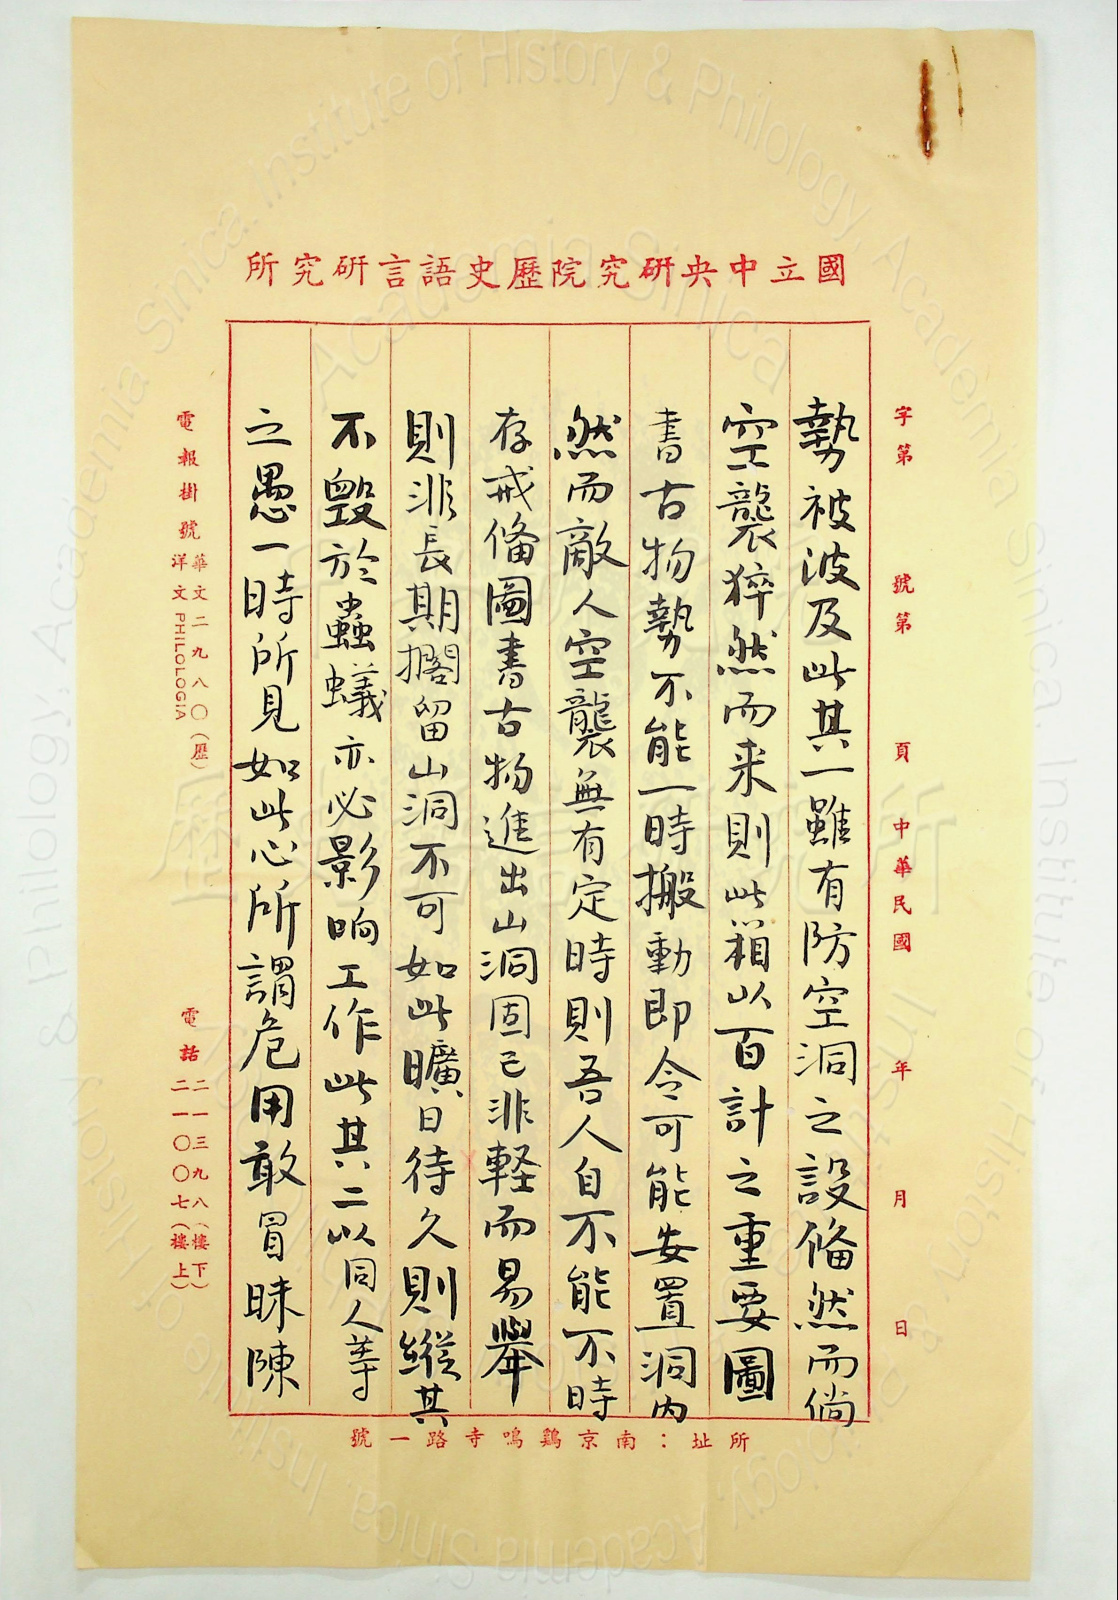 國立中央研究院歷史語言研究所
字第 號第 頁 中華民國 年 月 日
勢被波及此其一雖有防空洞之設備然而倘
空襲猝然而来則此箱以百計之重要圖
書古物勢不能一時搬動即令可能安置洞內
然而敵人空襲無有定時則吾人自不能不時
存戒備圖書古物進出山洞固已非軽而易舉
則非長期擱留山洞不可如此曠日待久則縱其
不毀於蟲蟻亦必影响工作此其二以同人等
之愚一時所見如此心所謂危用敢冒昧陳
電報掛號 華文二九八〇(歷)
洋文 PHILOLOGIA
電話 二一三九八(樓下)
二一〇〇七(樓上)
所址:南京鷄鳴寺路一號
Institute of History & Philology, Academia Sinica
歷史語言研究所